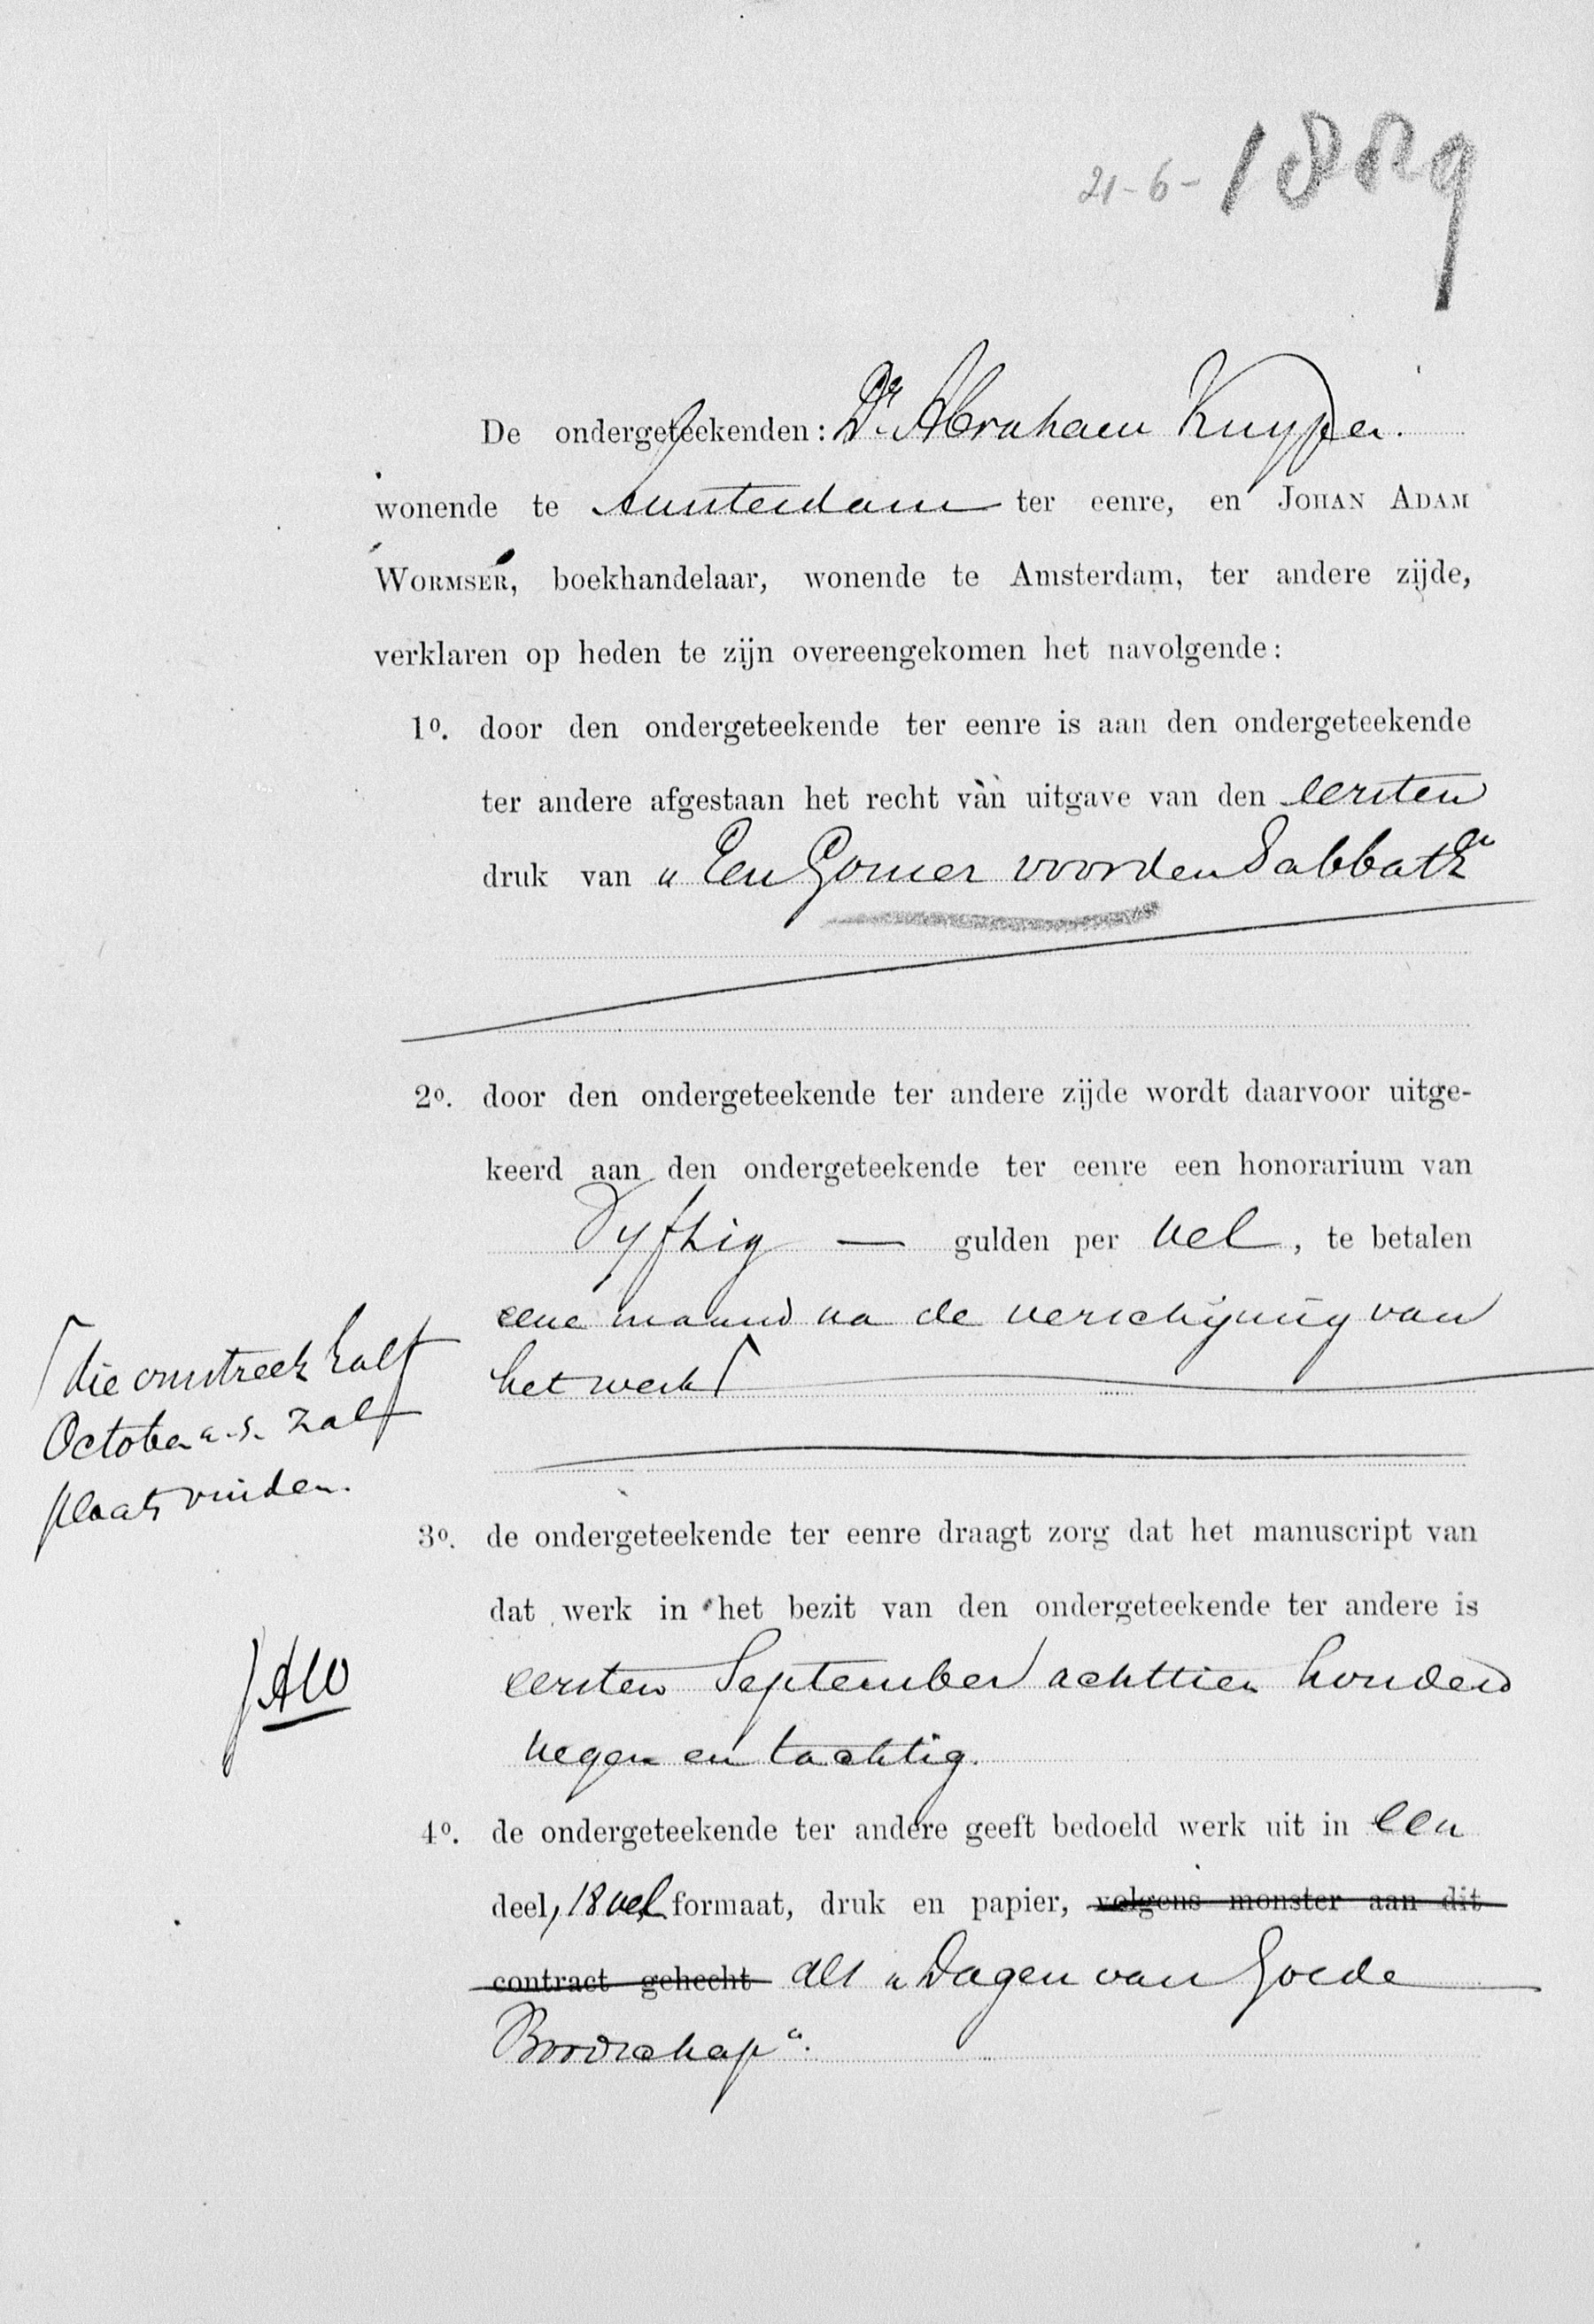 21-6-1889
De ondergeteekenden: Dr. Abraham Kuyper.
wonende te Amsterdam ter eenre, en JOHAN ADAM
WORMSER, boekhandelaar, wonende te Amsterdam, ter andere zijde,
verklaren op heden te zijn overeengekomen het navolgende:
1º. door den ondergeteekende ter eenre is aan den ondergeteekende
ter andere afgestaan het recht van uitgave van den eersten
druk van „Een Gomer voor den Sabbath“
2º. door den ondergeteekende ter andere zijde wordt daarvoor uitge-
keerd aan den ondergeteekende ter eenre een honorarium van
Vyftig — gulden per vel, te betalen
eene maand na de verschijning van
het werk
die omstreek half
October a.s. zal
plaats vinden.
3º. de ondergeteekende ter eenre draagt zorg dat het manuscript van
dat werk in het bezit van den ondergeteekende ter andere is
eersten September achttien honderd
negen en tachtig.
JAW
4º. de ondergeteekende ter andere geeft bedoeld werk uit in een
deel, 18 vel formaat, druk en papier, volgens monster aan dit
contract gehecht als „Dagen van Goede
Boodschap“.